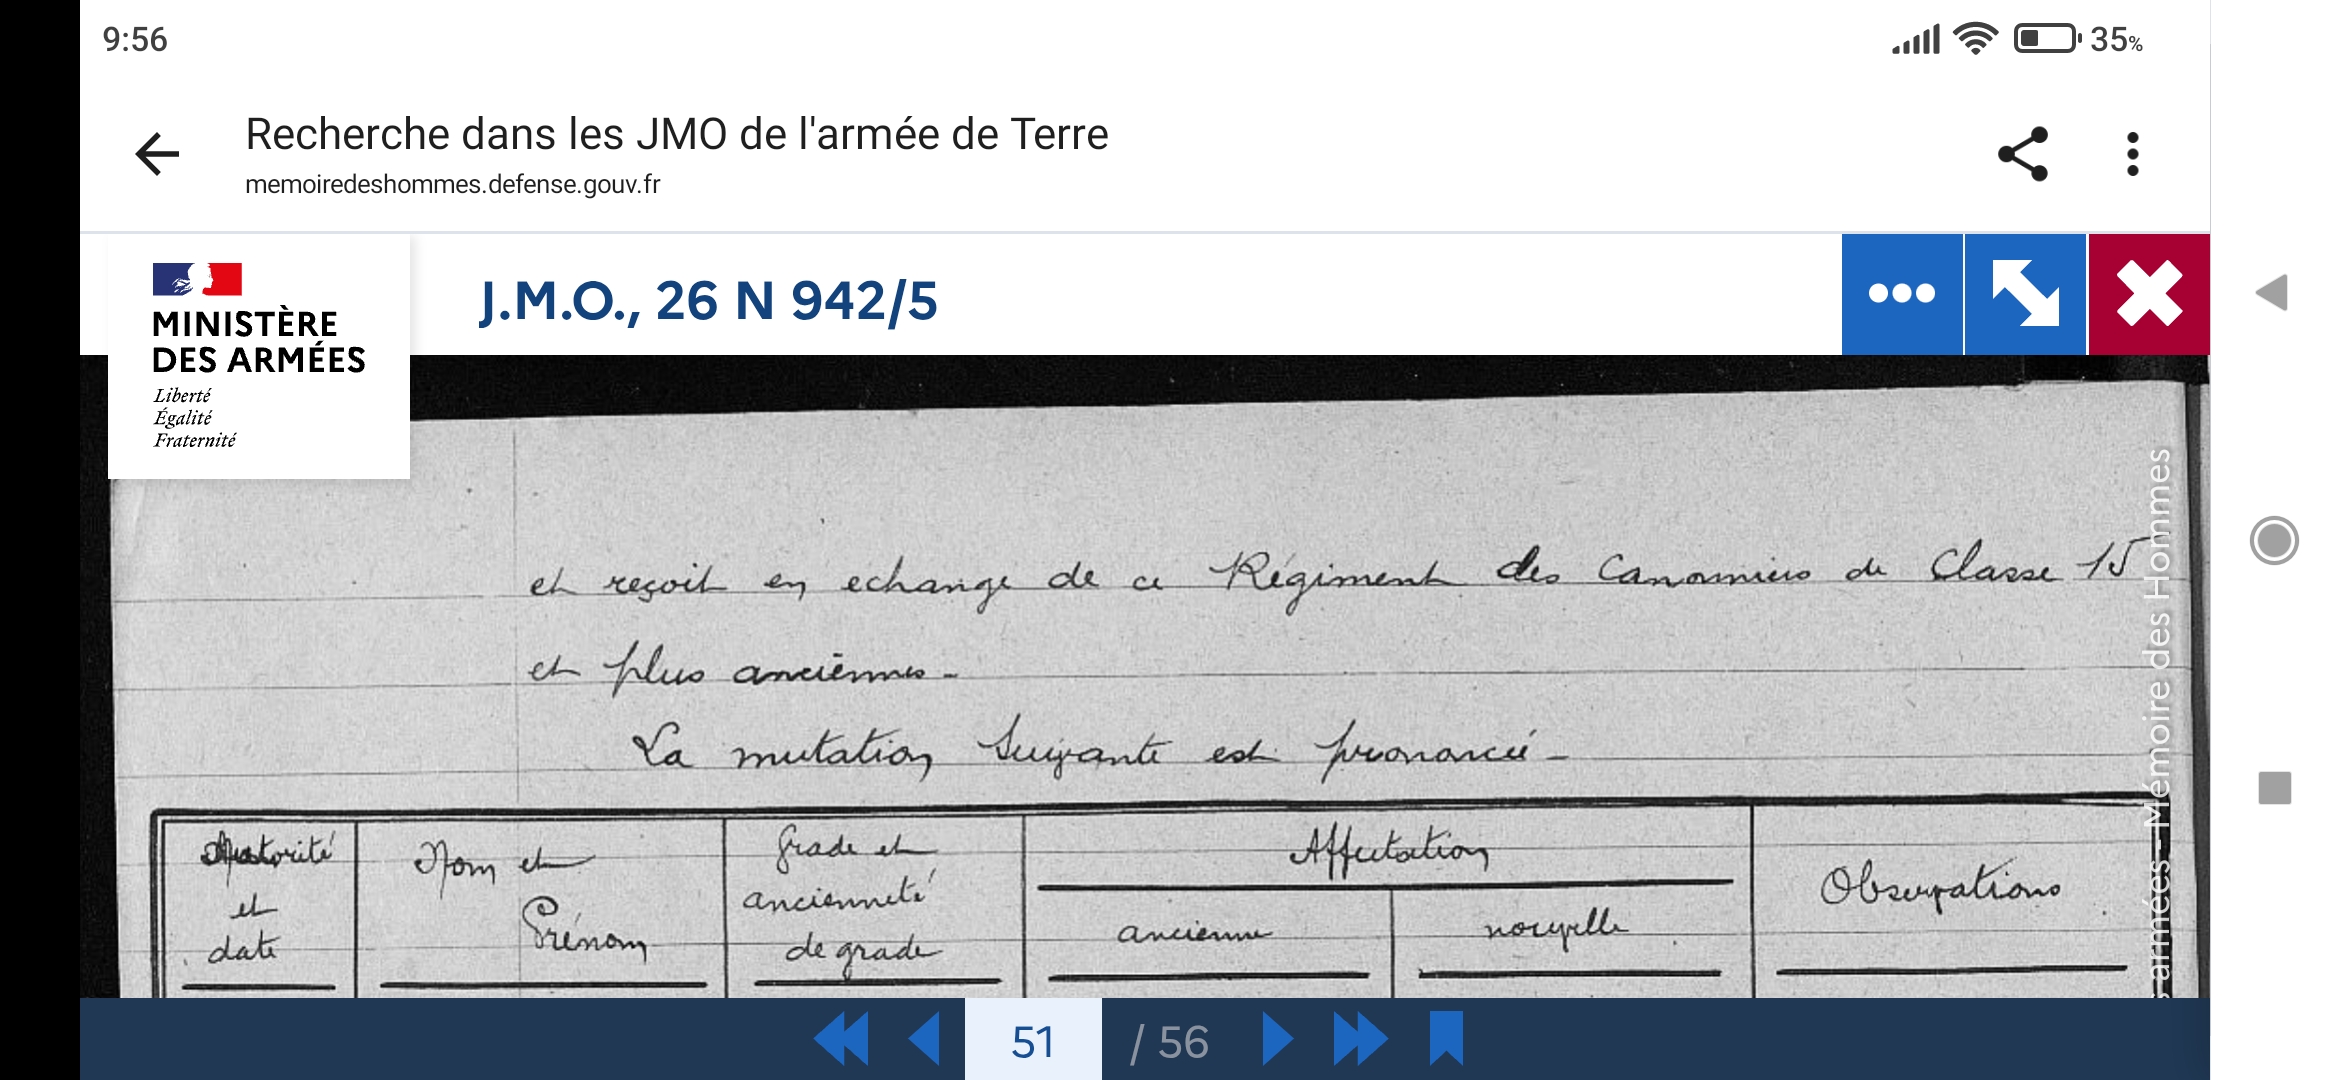 9:56
35%
Recherche dans les JMO de l'armée de Terre
memoiredeshommes.defense.gouv.fr
MINISTÈRE
DES ARMÉES
Liberté
Égalité
Fraternité
J.M.O., 26 N 942/5
et reçoit en echange de ce Régiment des Canonniers de Classe 15
et plus anciennes -
La mutation Suivante est prononcée -
Autorité
et
date
Nom et
Prénom
Grade et
ancienneté
de grade
Affectation
ancienne
nouvelle
Observations
armées - Mémoire des Hommes
51 / 56